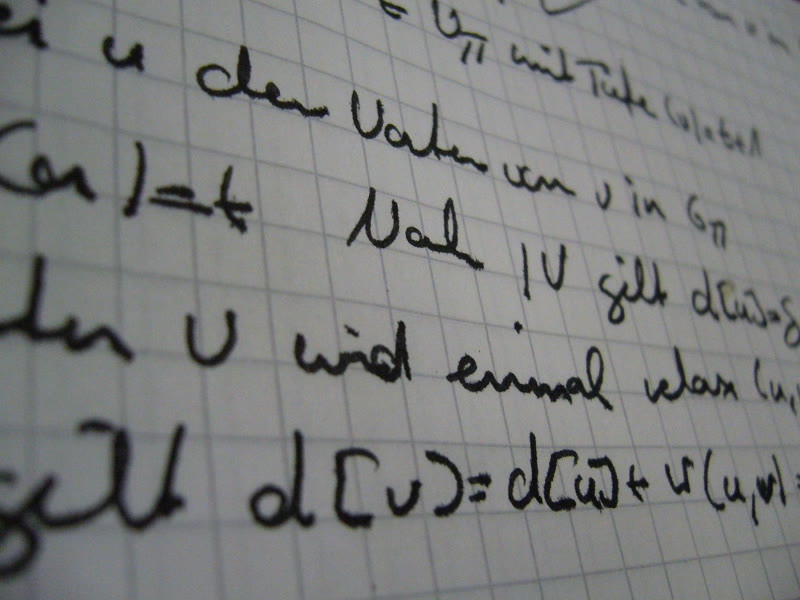 ∈ V_π mit Tiefe (v)=t+1
ei u der Vater von v in G_π
(u)=t Nach IV gilt d[u]=δ
den v wird einmal relax (u,
gilt d[v]=d[u]+w(u,v)=